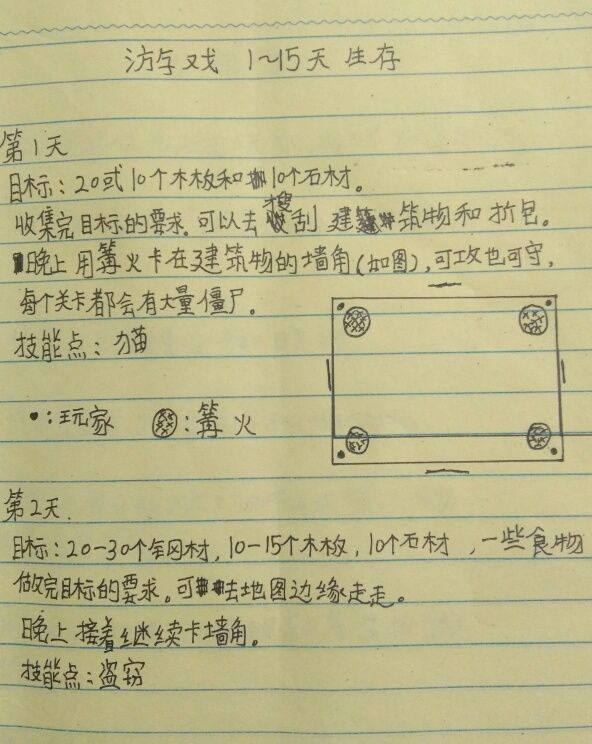 游戏 1~15天 生存
第1天
目标：20或10个木板和10个石材。
收集完目标的要求。可以去搜刮 建筑物和 折包。
晚上 用篝火卡在建筑物的墙角(如图)，可攻也可守，
每个关卡都会有大量僵尸。
技能点：猫
•：玩家 ：篝火
第2天.
目标：20-30个钢材，10-15个木板，10个石材，一些食物
做完目标的要求。可去地图边缘走走。
晚上 接着继续卡墙角。
技能点：盗窃